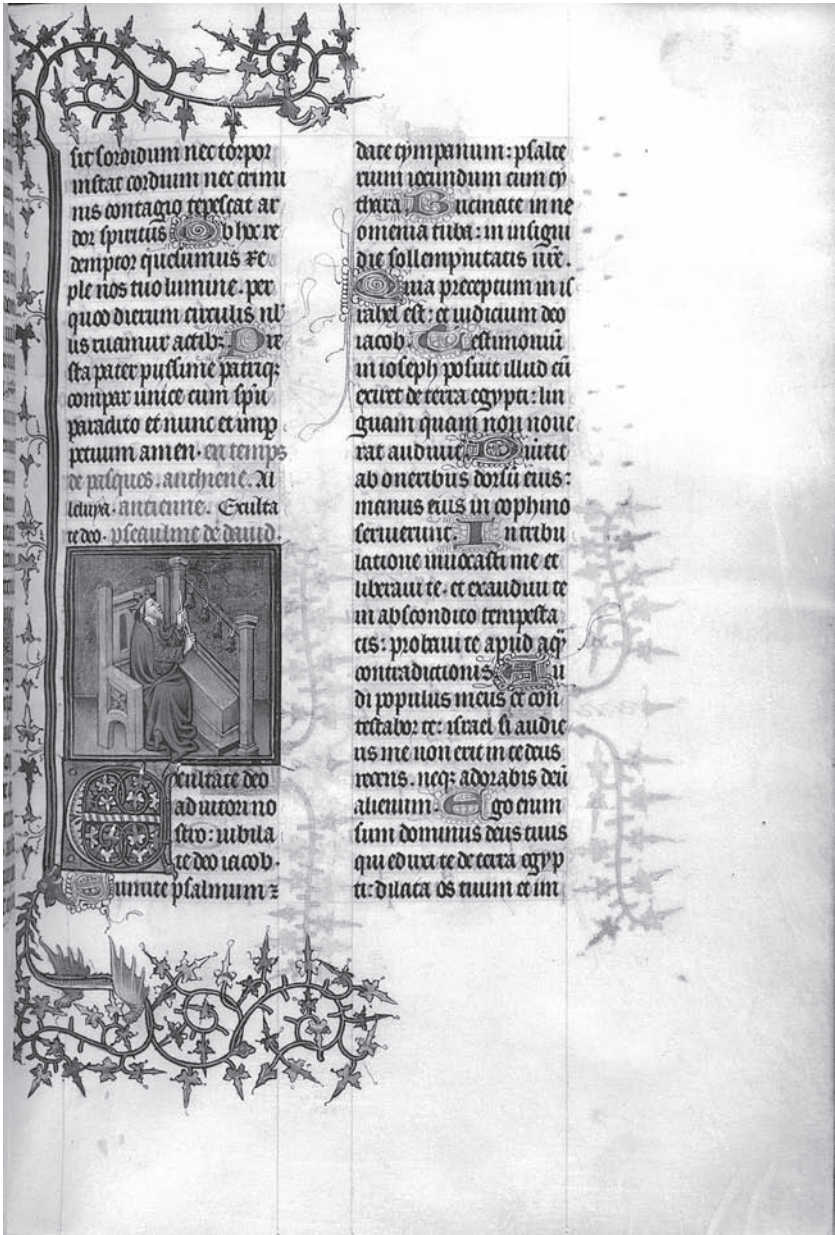 sit sordidum nec torpor
instat cordium nec crimi
nis contagio tepescat ar
dor spiritus Ob hoc re
demptor quesumus re
ple nos tuo lumine. per
quod dierum circulis nl
lis ruamur actib; Pre
sta pater pijssime patriq;
compar unice cum spū
paraclito et nunc et in ꝑ
petuum amen. en temps
de pasques. anthiene. Al
leluya. antienne. Exulta
te deo. pseaulme de dauid.
Exultate deo
adiutori no
stro: iubila
te deo iacob.
Sumite psalmum ⁊
date tympanum: psalte
rium iocundum cum cy
thara Bucinate in ne
omenia tuba: in insigni
die sollempnitatis ur̄e.
Quia preceptum in is
rahel est: et iudicium deo
iacob. Testimoniū
in ioseph posuit illud cū
exiret de terra egypti: lin
guam quam non noue
rat audiuit Diuertit
ab oneribus dorsū eius:
manus eius in cophino
seruierunt. In tribu
latione inuocasti me et
liberaui te. et exaudiui te
in abscondito tempesta
tis: probaui te apud aqͣ
contradictionis Au
di populus meus et con
testabor te: israel si audie
ris me non erit in te deus
recens. neq; adorabis deū
alienum. Ego enim
sum dominus deus tuus
qui eduxi te de terra egyp
ti: dilata os tuum et im